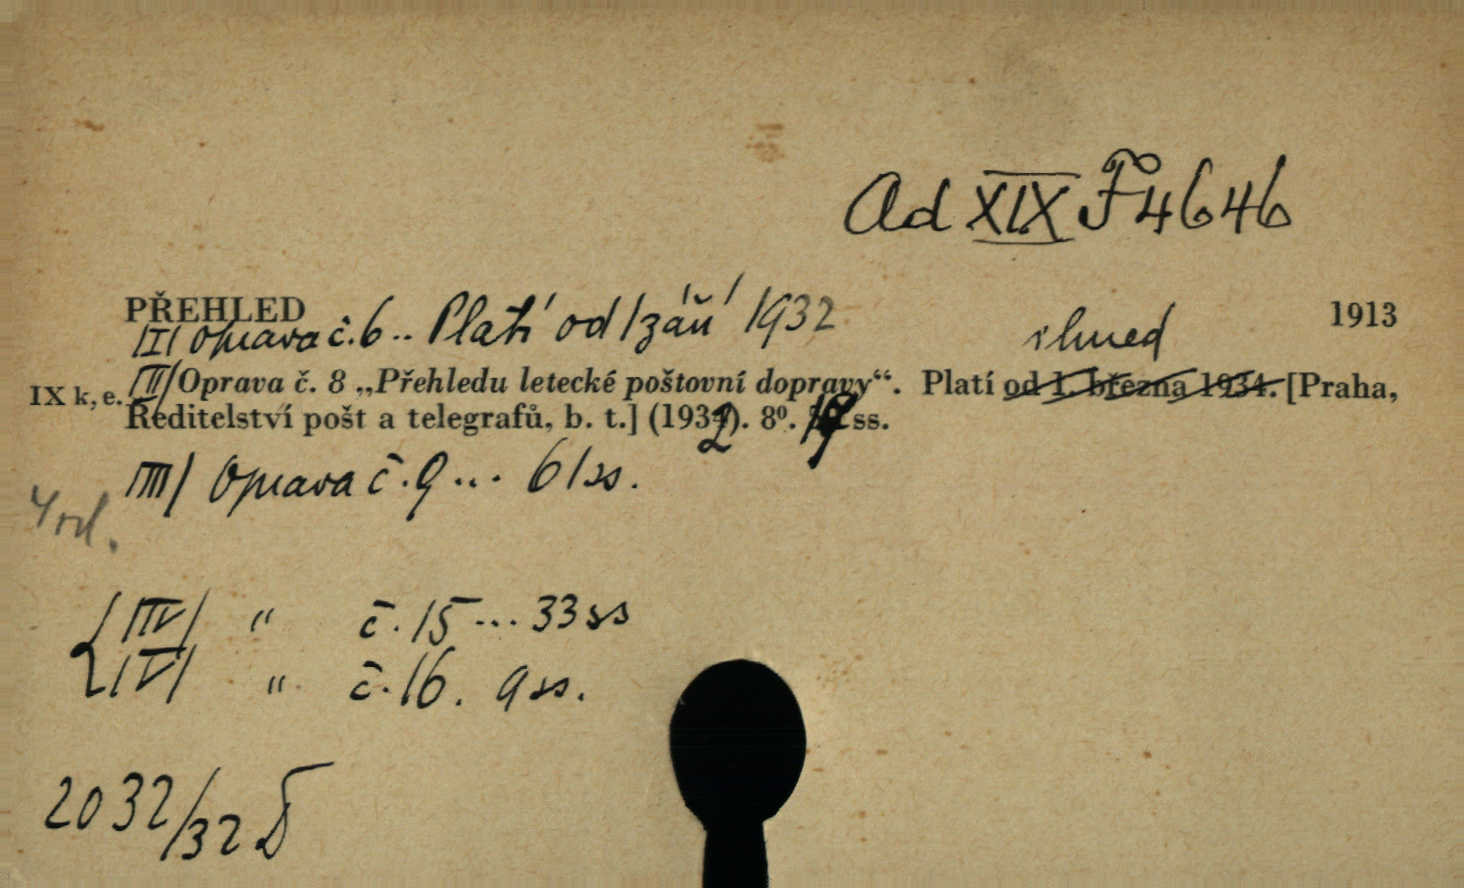 Ad XIX F 4646
PŘEHLED 1913
/I/ Oprava č. 6 .. Platí od 1 září 1932 ihned
IX k, e. /II/ Oprava č. 8 „Přehledu letecké poštovní dopravy“. Platí od 1. března 1934. [Praha,
Ředitelství pošt a telegrafů, b. t.] (1932). 8⁰. ss.
/III/ Oprava č. 9 ... 61 ss.
/IV/ " č. 15 ... 33 ss
/V/ " č. 16. 9 ss.
2032/32 D